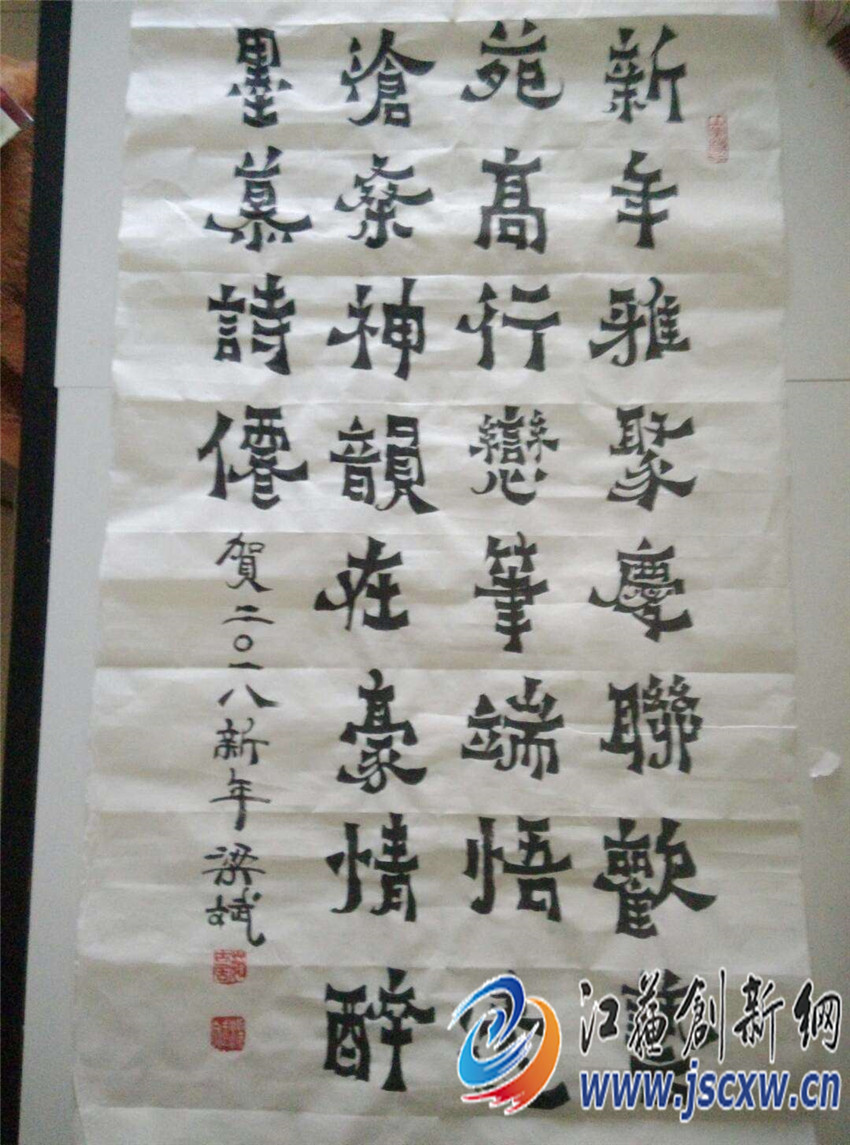 新年雅聚慶聯歡
苑髙行戀筆端悟
滄桑神韻在豪情醉
墨慕詩僊
賀二〇一八新年梁斌
江蘇創新網
www.jscxw.cn